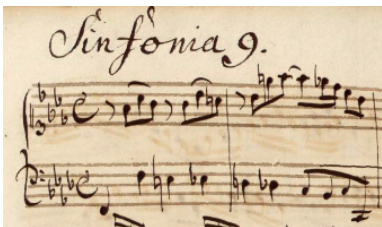 Sinfonia 9.